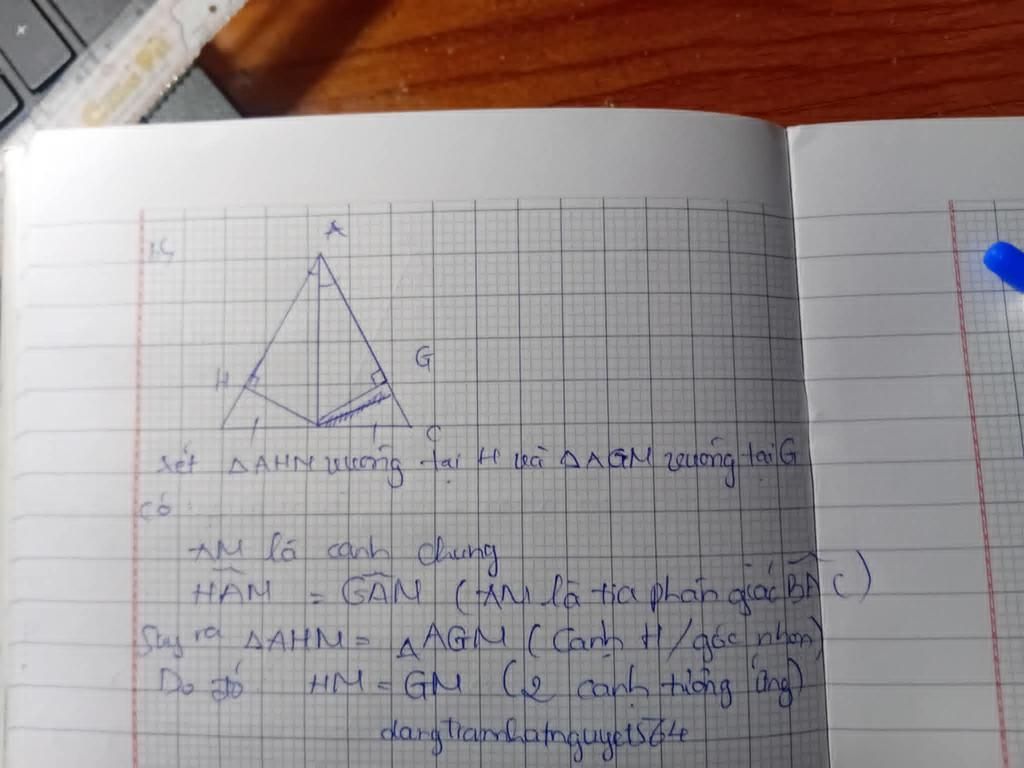 A
H
G
C
Xét ΔAHM vuông tại H và ΔAGM vuông tại G
có:
AM là cạnh chung
HAM = GAM (AM là tia phân giác BAC)
Suy ra ΔAHM = ΔAGM (Cạnh H/góc nhọn)
Do đó HM = GM (2 cạnh tương ứng)